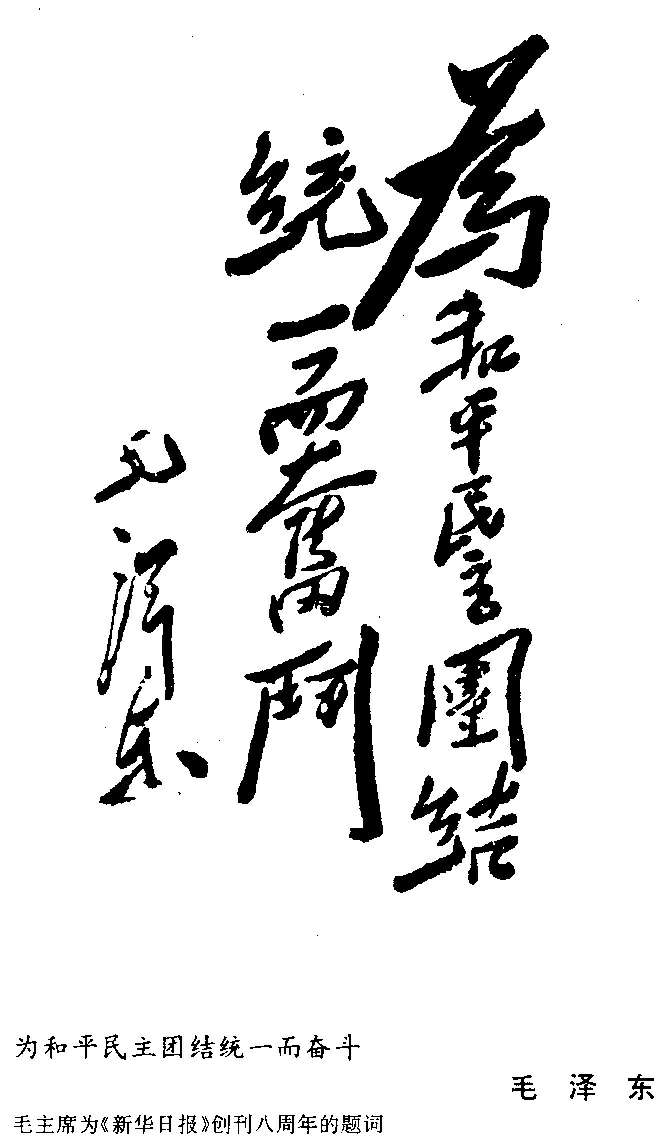 爲和平民主團結
統一而奮鬥
毛澤东
为和平民主团结统一而奋斗
毛泽东
毛主席为《新华日报》创刊八周年的题词